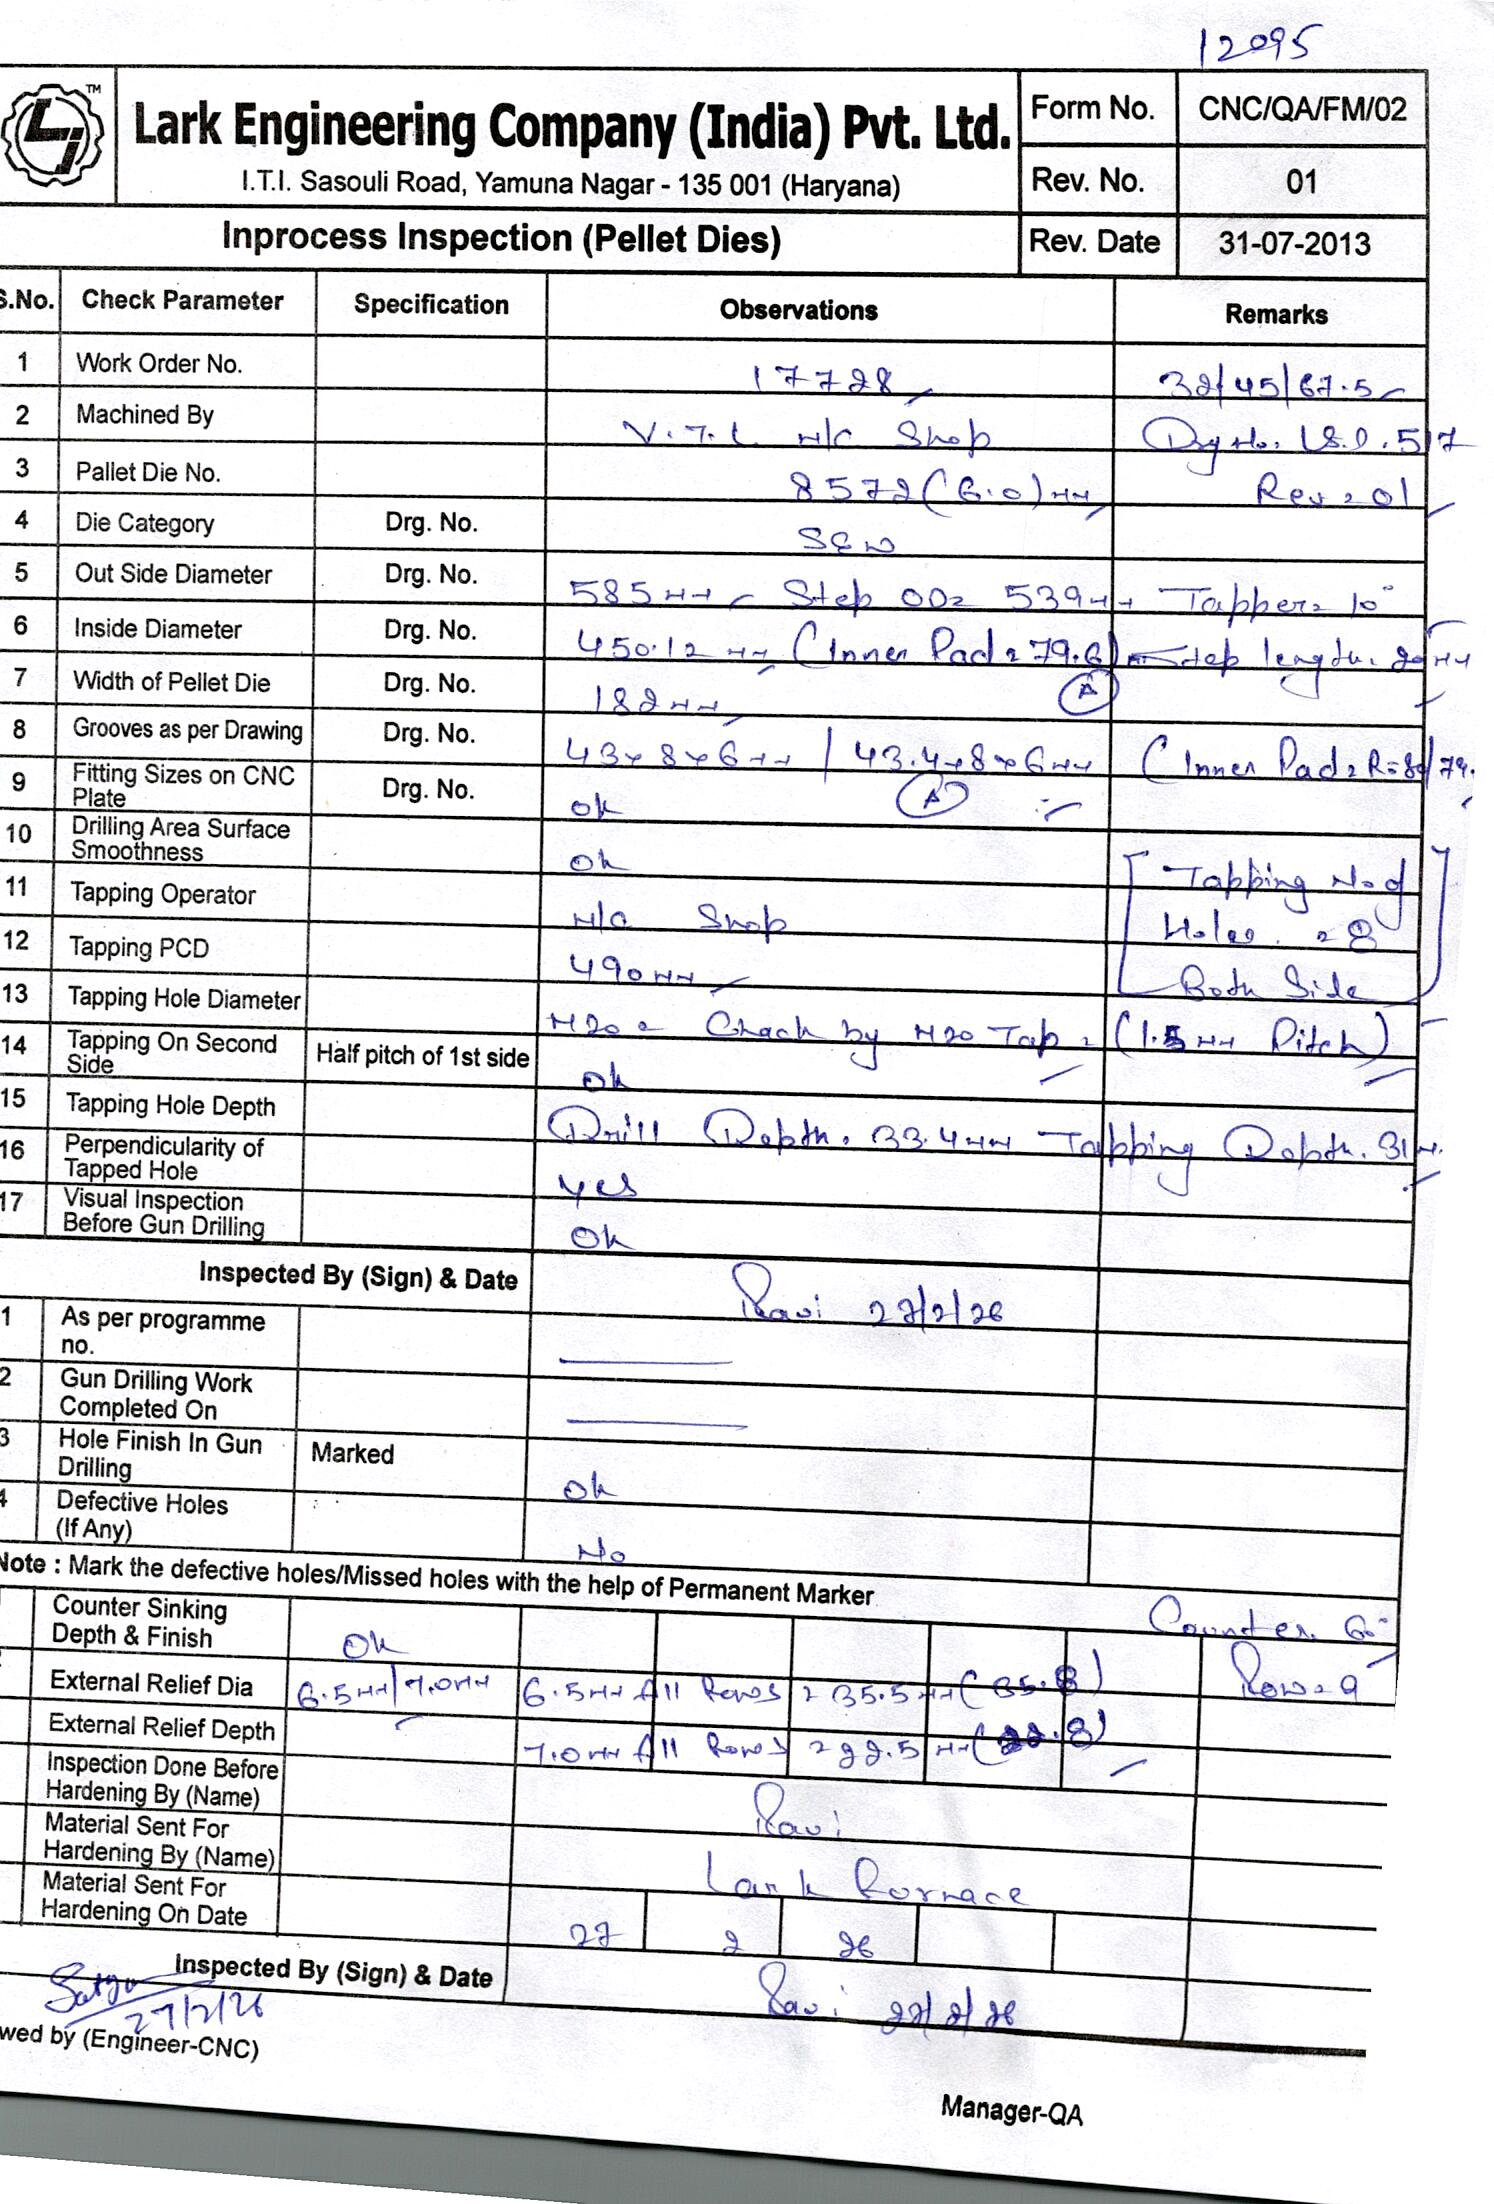 12095
TM
Lark Engineering Company (India) Pvt. Ltd.
I.T.I. Sasouli Road, Yamuna Nagar - 135 001 (Haryana)
Form No. CNC/QA/FM/02
Rev. No. 01
Inprocess Inspection (Pellet Dies)
Rev. Date 31-07-2013
S.No. Check Parameter Specification Observations Remarks
1 Work Order No. 17728 32/45/67.5
2 Machined By V.T.L M/C Shop Drg No. 517
3 Pallet Die No. 8572 (6.0) mm Rev = 01
4 Die Category Drg. No.
5 Out Side Diameter Drg. No. 585mm Step OD= 539mm Tapper= 10°
6 Inside Diameter Drg. No. 450.12 mm (Inner Pad = 79.6) Step length. 20mm
7 Width of Pellet Die Drg. No. 182mm A
8 Grooves as per Drawing Drg. No. 43x8x6mm / 43.4x8x6mm (Inner Pad = R=80/79.
9 Fitting Sizes on CNC Plate Drg. No. ok A
10 Drilling Area Surface Smoothness ok [Tapping No. of
11 Tapping Operator M/C Shop Holes. = 8
12 Tapping PCD 490mm Both Side]
13 Tapping Hole Diameter M20 = Chack by M20 Tap = (1.5mm Pitch)
14 Tapping On Second Side Half pitch of 1st side ok
15 Tapping Hole Depth Drill Depth. 33.4mm Tapping Depth. 31m.
16 Perpendicularity of Tapped Hole yes
17 Visual Inspection Before Gun Drilling Ok
Inspected By (Sign) & Date Ravi 27/2/26
1 As per programme no.
2 Gun Drilling Work Completed On
3 Hole Finish In Gun Drilling Marked ok
4 Defective Holes (If Any) No
Note : Mark the defective holes/Missed holes with the help of Permanent Marker
Counter Sinking Depth & Finish Ok Counter. 60°
External Relief Dia 6.5mm/7.0mm 6.5mm All Rows = 35.5mm (35.8) Row = 9
External Relief Depth 7.0mm All Rows = 22.5mm (22.8)
Inspection Done Before Hardening By (Name) Ravi
Material Sent For Hardening By (Name) Lark Fornace
Material Sent For Hardening On Date 27 2 26
Inspected By (Sign) & Date Ravi 27/2/26
27/2/26
wed by (Engineer-CNC)
Manager-QA